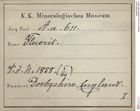 K.K. Mineralogisches Museum.
Acq. Post A.d. 611.
Fluorit.
Fundort: Derbyshire, England.